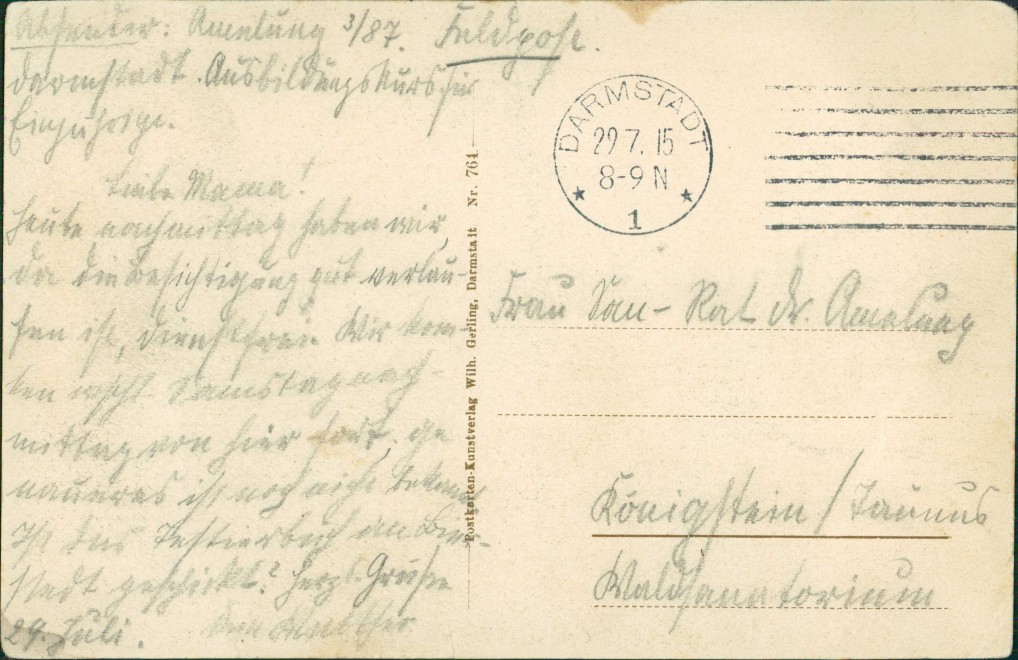 Absender: Amelung 3/87. Feldpost.
Darmstadt. Ausbildungskurs für
Einjährige.
Liebe Mama!
Heute nachmittag haben wir,
da die Besichtigung gut verlau-
fen ist, dienstfrei. Wir kom-
men Samstagnach-
mittag von hier fort. Ge
naueres ist noch nicht bekannt
Ist das Testierbuch an
geschickt? Herzl. Grüße
29. Juli. Dein Walther
DARMSTADT
29 7. 15
8-9 N
1
Postkarten-Kunstverlag Wilh. Gerling, Darmstadt Nr. 764.
Frau San-Rat Dr. Amelung
Königstein/Taunus
Waldsanatorium